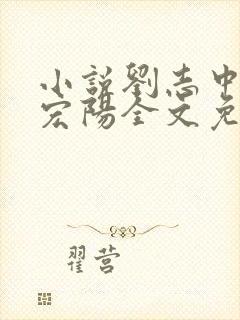 小说劉志中
宏陽全文免
翟营